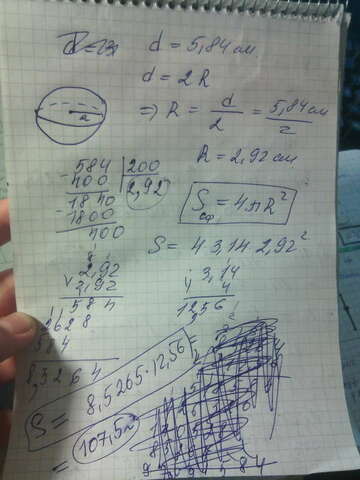 d = 5,84 см
d = 2R
=> R = d/2 = 5,84 см/2
R
R = 2,92 см
- 584 | 200
400
2,92
1840
- 1800
400
S сф = 4πR²
S = 4 3,14 2,92²
2,92
2,92
584
2628
584
8,5264
3,14
4
12,56
S = 8,5265·12,56 =
= 107,5